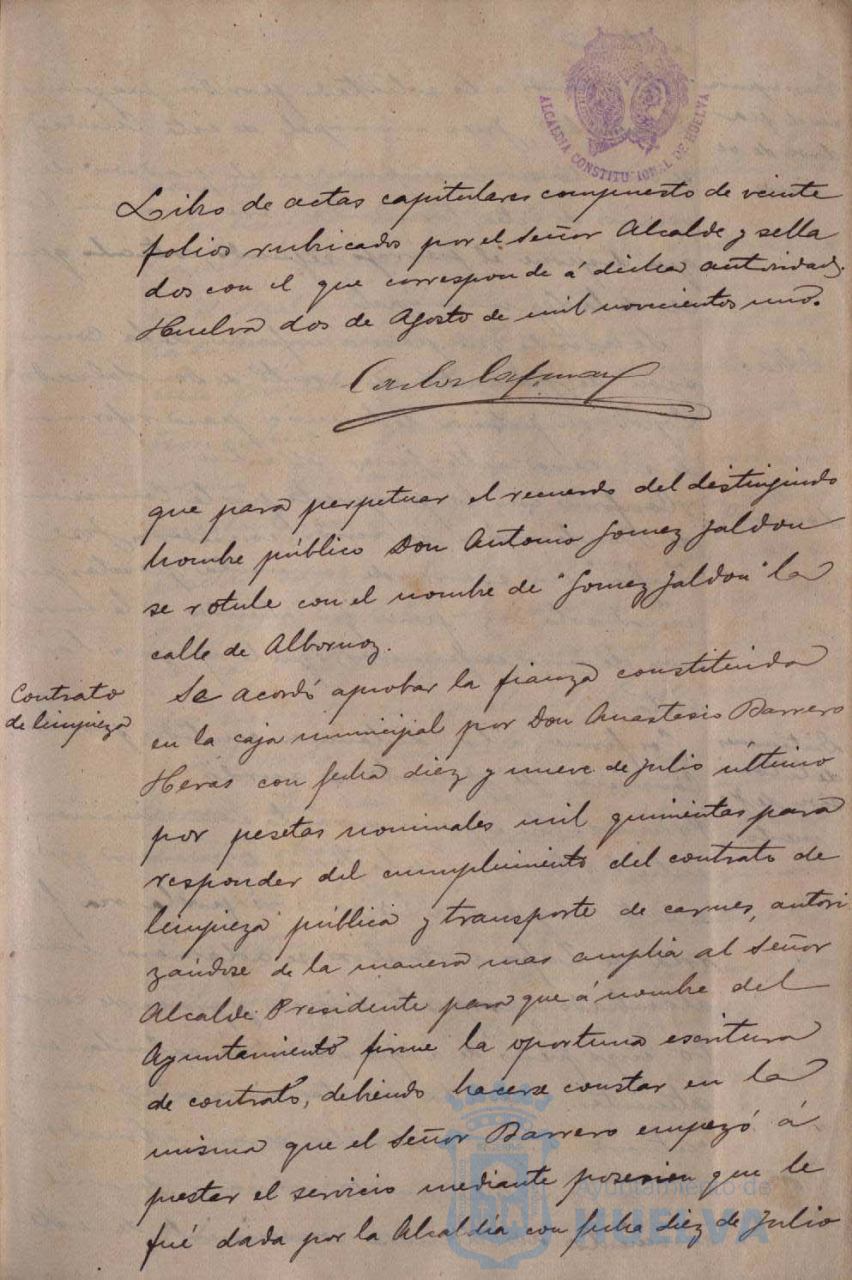 ALCALDIA CONSTITUCIONAL DE HUELVA
Libro de actas capitulares compuesto de veinte
folios rubricados por el Señor Alcalde y sella
dos con el que corresponde á dicha autoridad.
Huelva dos de Agosto de mil novecientos uno.
Carlos
que para perpetuar el recuerdo del distinguido
hombre público Don Antonio Gomez Jaldon
se rotule con el nombre de "Gomez Jaldon" la
calle de Albornoz.
Contrato
de limpieza
Se acordó aprobar la fianza constituida
en la caja municipal por Don Anastasio Barrero
Heras con fecha diez y nueve de julio último
por pesetas nominales mil quinientas para
responder del cumplimiento del contrato de
limpieza pública y transporte de carnes, autori
zándose de la manera mas amplia al Señor
Alcalde Presidente para que á nombre del
Ayuntamiento firme la oportuna escritura
de contrato, debiendo hacerse constar en la
misma que el Señor Barrero empezó á
prestar el servicio mediante posesion que le
fué dada por la Alcaldía con fecha diez de Julio
Ayuntamiento de
HUELVA